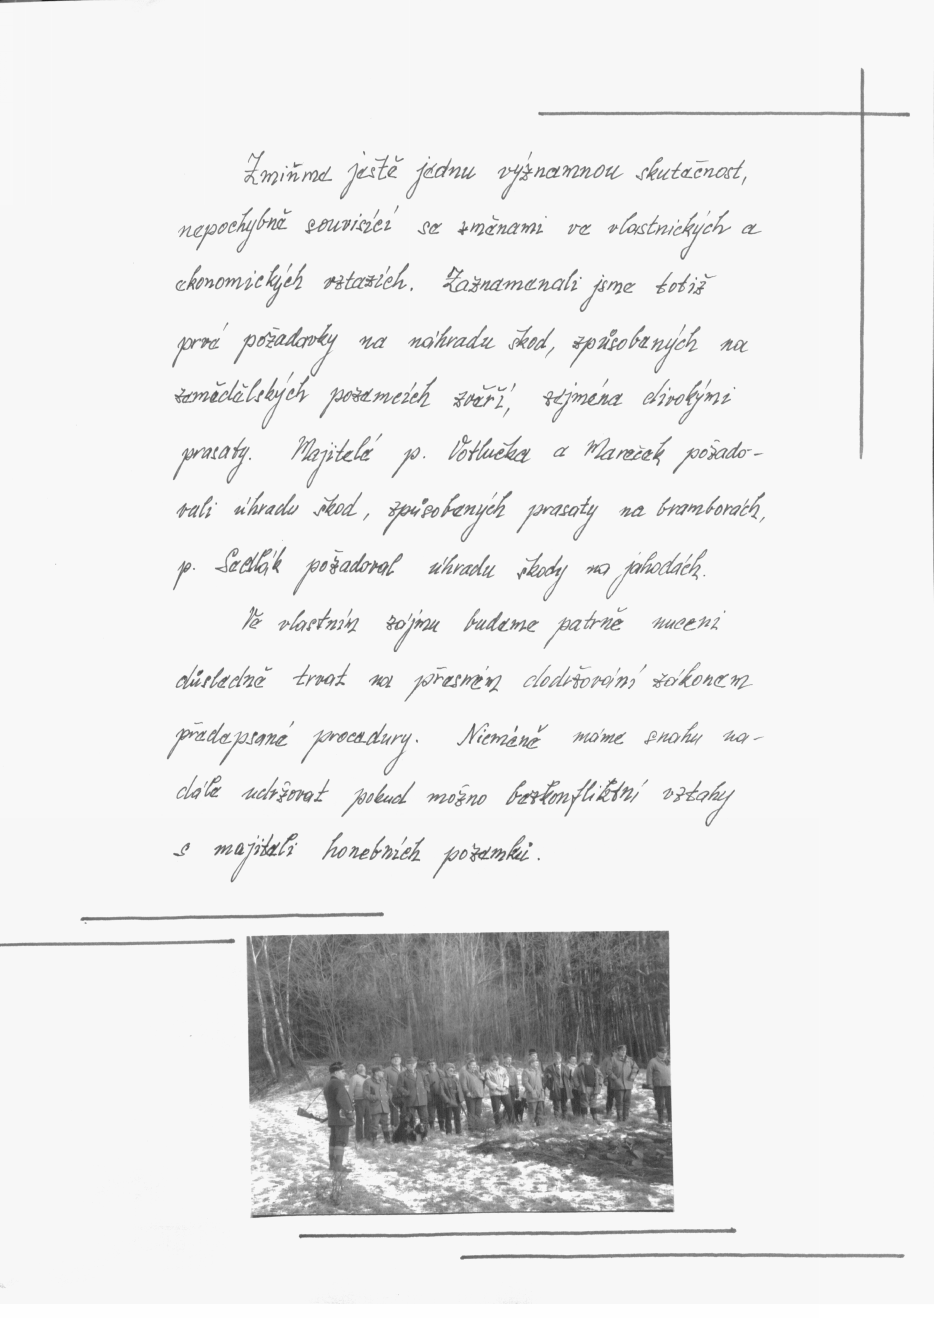 Zmiňme ještě jednu významnou skutečnost,
nepochybně souvisící se změnami ve vlastnických a
ekonomických vztazích. Zaznamenali jsme totiž
prvé požadavky na náhradu škod, způsobených na
zemědělských pozemcích zvěří, zejména divokými
prasaty. Majitelé p. Votlučka a Mareček požado-
vali úhradu škod, způsobených prasaty na bramborách,
p. Sedlák požadoval úhradu škody na jahodách.
Ve vlastním zájmu budeme patrně nuceni
důsledně trvat na přesném dodržování zákonem
předepsané procedury. Nicméně máme snahu na-
dále udržovat pokud možno bezkonfliktní vztahy
s majiteli honebních pozemků.